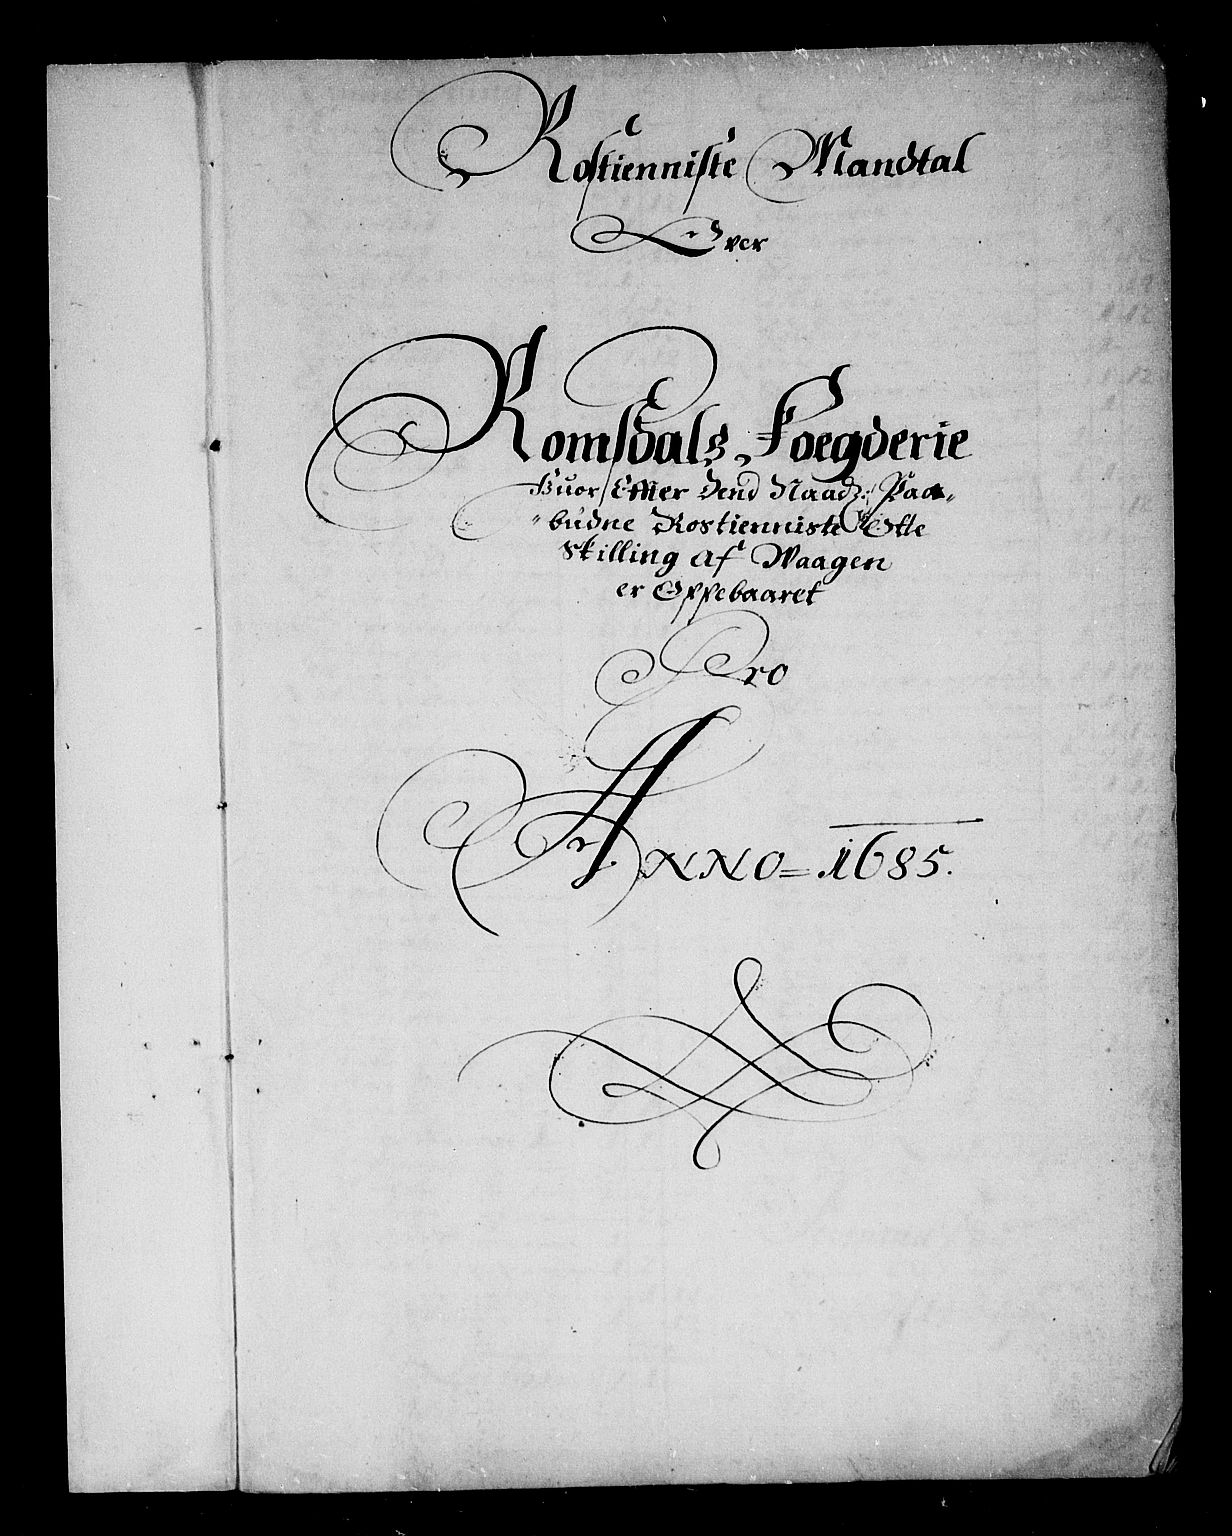 Rostienniste Mandtal
Over
Romsdals Foegderie
Huor Effter Dend Naadz: Paa„
„budne Rostienniste Otte
Skilling af Waagen
er Oppebaaret
Pro
ANNO = 1685.